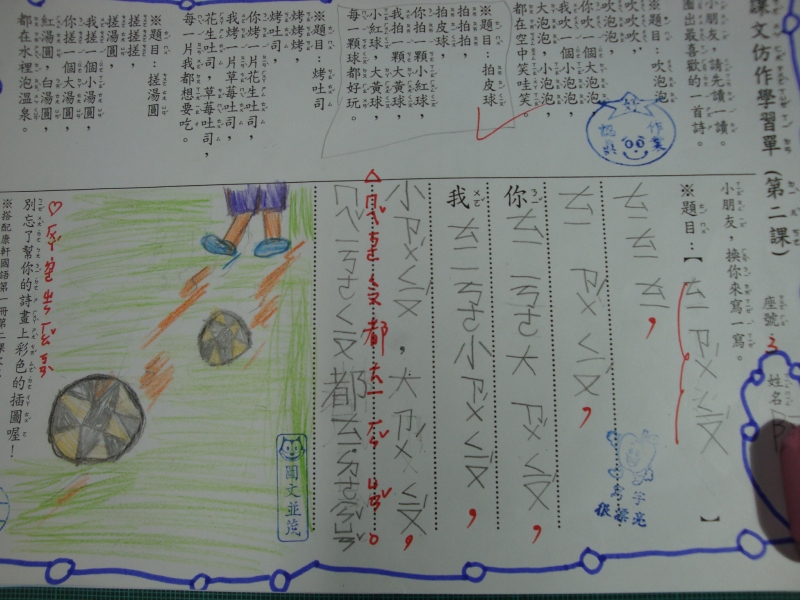 課文仿作學習單（第二課）
座號
3
姓名
小朋友，請先讀一讀。
圈出最喜歡的一首詩。
※題目：吹泡泡
吹泡泡，
吹吹吹，
你吹一個大泡泡，
我吹一個小泡泡，
大泡泡，小泡泡，
都在空中笑哇笑。
※題目：拍皮球
拍皮球，
拍拍拍，
你拍一顆小紅球，
我拍一顆大黃球，
小紅球，大黃球，
每一顆球都好玩。
※題目：烤吐司
烤吐司，
烤烤烤，
你烤一片花生吐司，
我烤一片草莓吐司，
花生吐司，草莓吐司，
每一片我都想要吃。
※題目：搓湯圓
搓湯圓，
搓搓搓，
你搓一個大湯圓，
我搓一個小湯圓，
紅湯圓，白湯圓，
都在水裡泡溫泉。
作業
小朋友，換你來寫一寫。
※題目：【ㄊㄧ ㄗㄨ ㄑㄧㄡ】
ㄊㄧ ㄊㄧ ㄊㄧ，
ㄊㄧ ㄗㄨ ㄑㄧㄡ，
你 ㄊㄧ ㄧ ㄎㄜ 大 ㄗㄨ ㄑㄧㄡ，
我 ㄊㄧ ㄧ ㄎㄜ 小 ㄗㄨ ㄑㄧㄡ，
小 ㄗㄨ ㄑㄧㄡ，大 ㄗㄨ ㄑㄧㄡ，
字亮
很漂亮
圖文並茂
別忘了幫你的詩畫上彩色的插圖喔！
※搭配康軒國語第一冊第二課